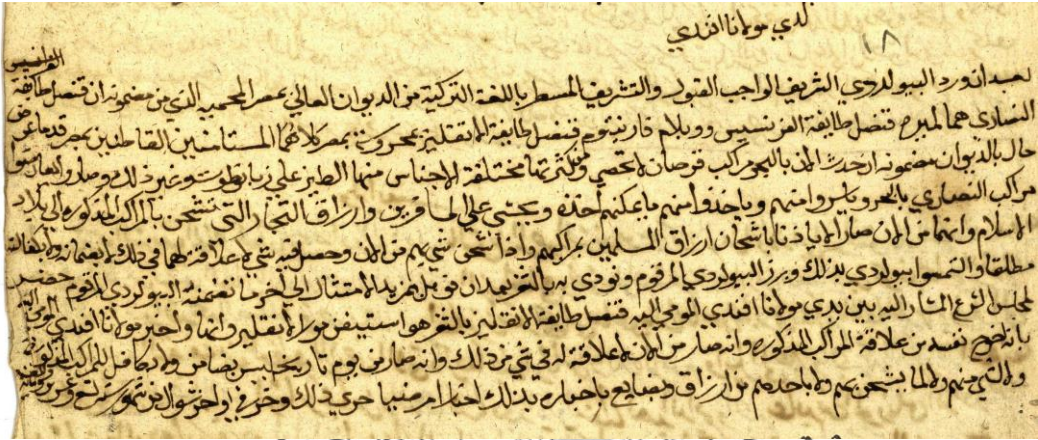 لدي مولانا افندي
١٨
بعد ان ورد البيولردي الشريف الواجب القبول والتشريف المسطر باللغة التركية من الديوان العالي بمصر المحمية الذي من مضمونه ان قنصل طايفة الفرنسيس
النصاري هما لمبره قنصل طايفة الفرنسيس وويلام قنصل طايفة الانقليز بمحروسة بمصر كلاهما المستامنين القاطنين بمصر قدما عرض
حال بالديوان مضمونه ان حدث الان بالبحر مراكب قرصان لا تحصي مختلفة الاجناس منها الطير علي وغير ذلك وصاروا
مراكب النصاري بالبحر وياسروا منهم وياخذوا منهم ما يمكنهم اخذه ويخشي علي المسافرين وارزاق التجار التي تشحن بالمراكب المذكوره الي بلاد
الاسلام وانهما من الان صارا لا ياذنا باشحان ارزاق المسلمين بمراكبهم واذا شحن شي بهم من الان وحصل فيه شي لا علاقة لهما في ذلك لا بضمانه ولا بكفالة
مطلقا والتمسوا بيولردي بذلك وبرز البيولردي المرقوم ونودي به بالثغر بعد ان قوبل بمزيد الامتثال الي اخر ما تضمنه البيولردي المرقوم حضر
لمجلس الشرع المشار اليه بين يدي مولانا افندي المومي اليه قنصل طايفة الانقليز بالثغر هو استيفن واخبر مولانا افندي المومي اليه
بانه اخرج نفسه من علاقة المراكب المذكوره وانه صار من الان لا علاقة له في شي من ذلك وانه صار من يوم تاريخه ليس بضامن ولا بكافل للمراكب المذكورة
ولا لشي منهم ولا لما يشحن بهم ولا باحدهم من ارزاق وبضايع باخباره بذلك اخبارا مرضيا جري ذلك وحرر في اواخر شوال